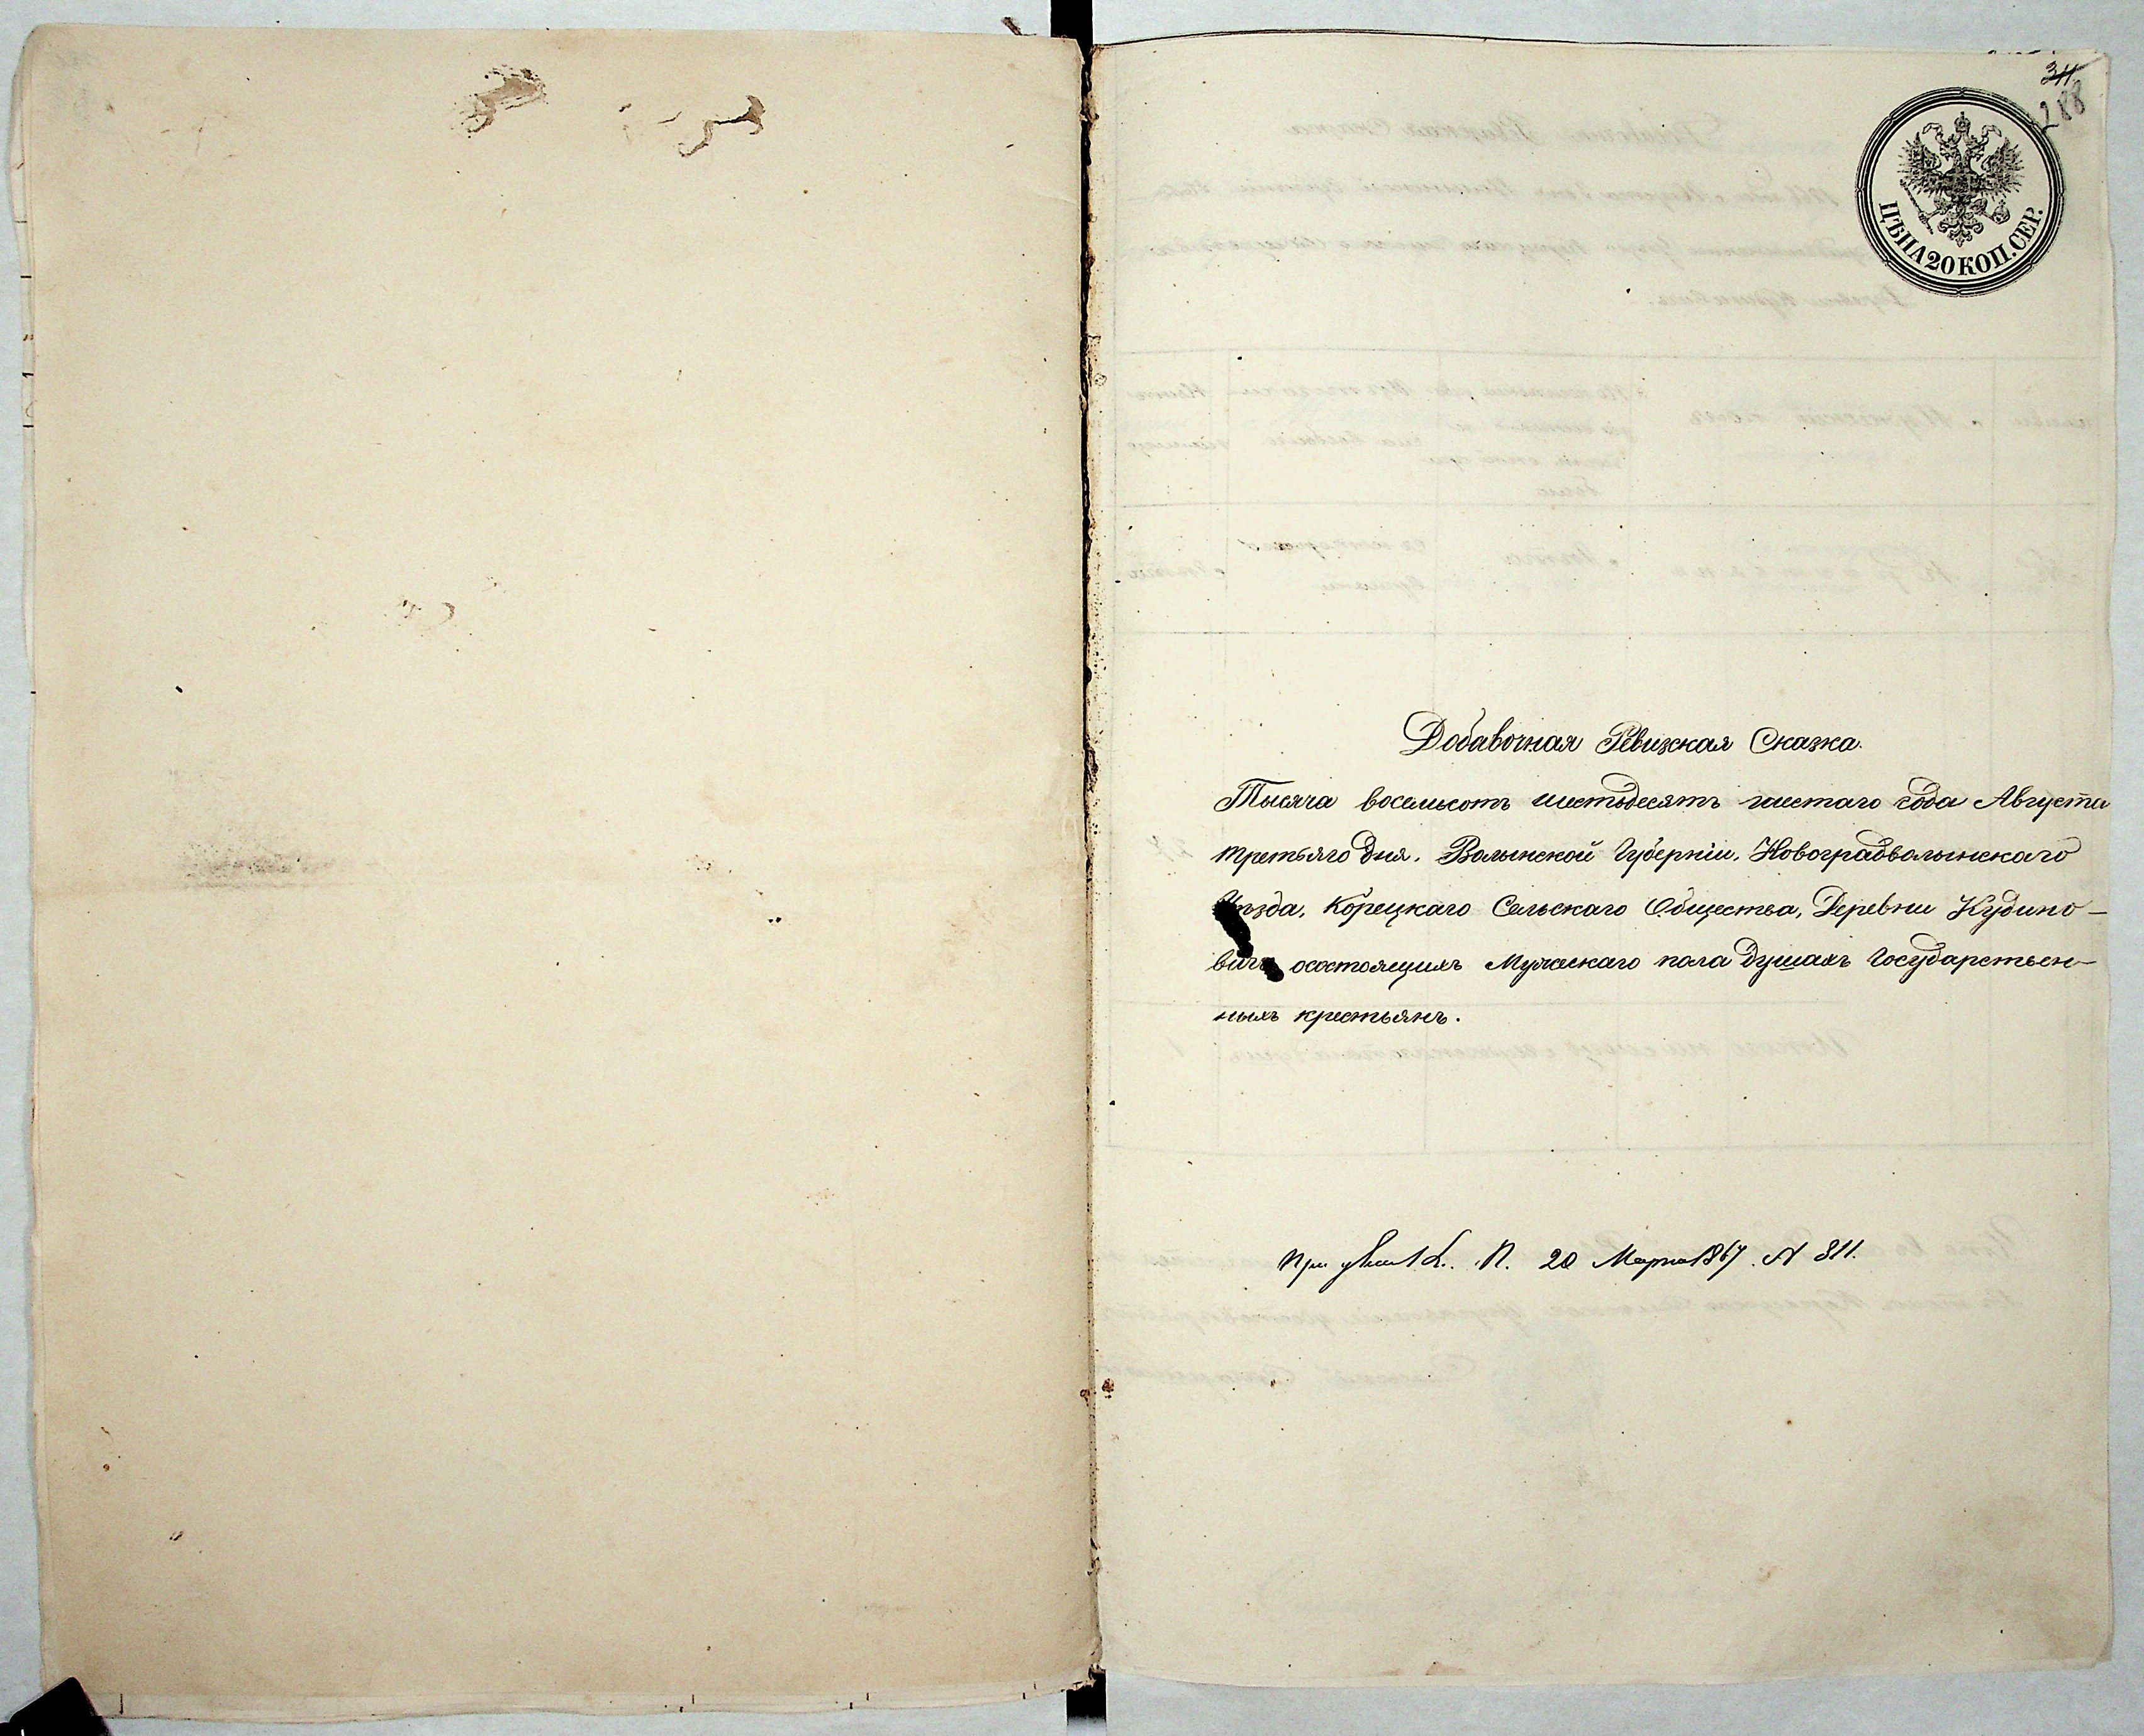 311
288
ЦѢНА 20 КОП. СЕР.
Добавочная Ревизская Сказка.
Тысяча восемьсотъ шестьдесятъ шестаго года Августа
третьяго дня. Волынской Губерніи, Новоградволынскаго
Уѣзда, Корецкаго Сельскаго Общества, Деревни Кудино-
вичъ осостоящихъ Мужескаго пола душахъ Государствен-
ныхъ крестьянъ.
При П. 20 Марта 1867. № 811.